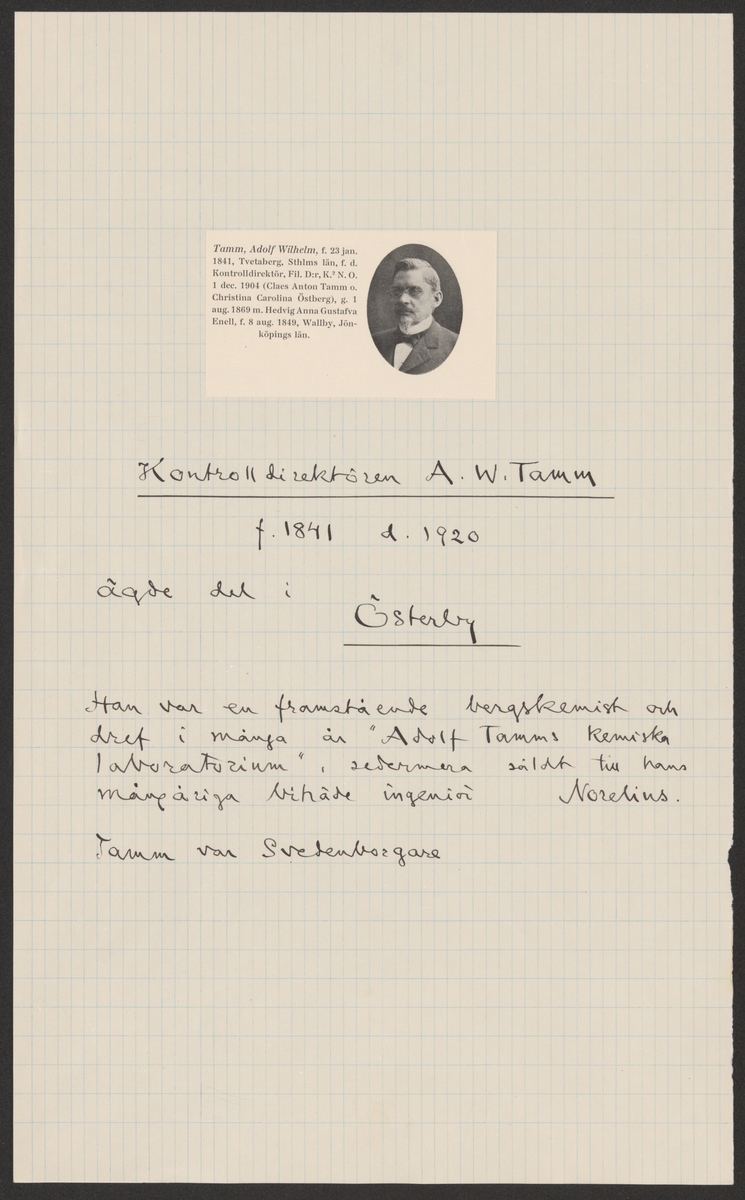 Tamm, Adolf Wilhelm, f. 23 jan.
1841, Tvetaberg, Sthlms län, f. d.
Kontrolldirektör, Fil. D:r, K.² N. O.
1 dec. 1904 (Claes Anton Tamm o.
Christina Carolina Östberg), g. 1
aug. 1869 m. Hedvig Anna Gustafva
Enell, f. 8 aug. 1849, Wallby, Jön-
köpings län.
Kontrolldirektören A. W. Tamm
f. 1841 d. 1920
ägde del i
Österby
Han var en framstående bergskemist och
dref i många år "Adolf Tamms kemiska
laboratorium", sedermera såldt till hans
mångåriga biträde ingeniör Norelius.
Tamm var Svedenborgare